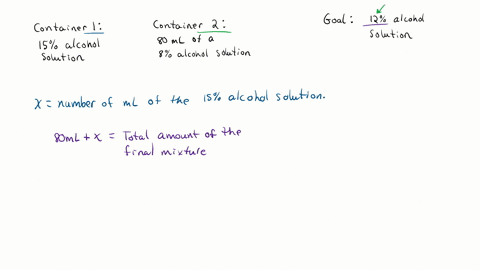 Container 1:
15% alcohol
Solution
Container 2:
80 mL of a
8% alcohol solution
Goal: 12% alcohol
Solution
x = number of mL of the 15% alcohol solution.
80mL + x = Total amount of the
final mixture